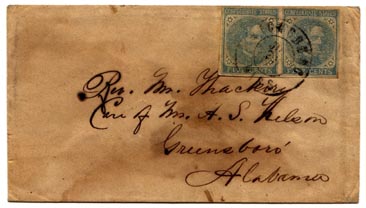 CONFEDERATE STATES CONFEDERATE STATES
FIVE CENTS FIVE CENTS
Rev. Mr. Thackery
Care of Mr. A. S. Nelson
Greensboro'
Alabama